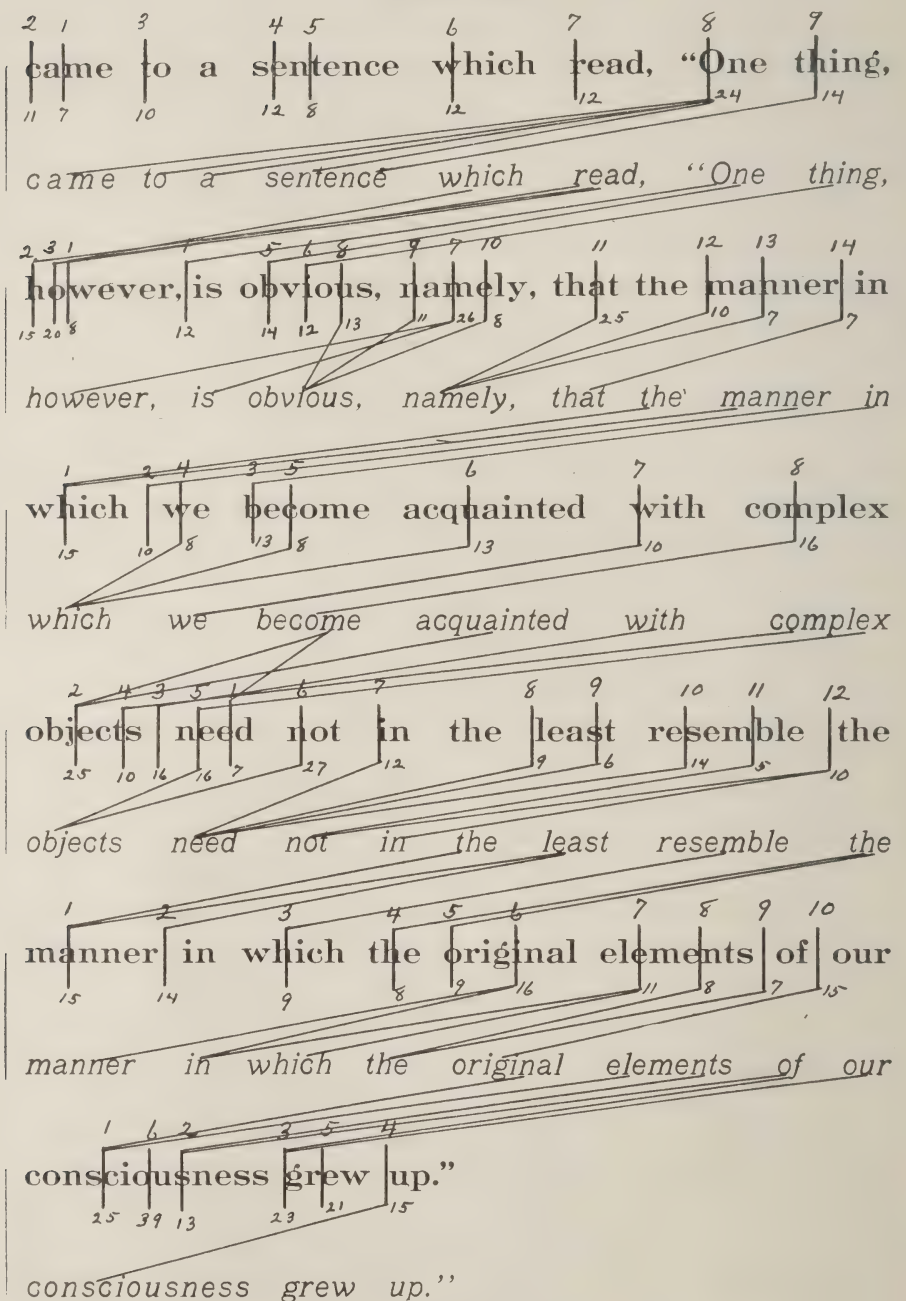 2 1 3 4 5 6 7 8 9
came to a sentence which read, “One thing,
11 7 10 12 8 12 12 24 14
came to a sentence which read, “One thing,
2 3 1 1 5 6 8 9 7 10 11 12 13 14
however, is obvious, namely, that the manner in
15 20 8 12 14 12 13 11 26 8 25 10 7 7
however, is obvious, namely, that the manner in
1 2 4 3 5 6 7 8
which we become acquainted with complex
15 10 8 13 8 13 10 16
which we become acquainted with complex
2 4 3 5 1 6 7 8 9 10 11 12
objects need not in the least resemble the
25 10 16 16 7 27 12 9 6 14 5 10
objects need not in the least resemble the
1 2 3 4 5 6 7 8 9 10
manner in which the original elements of our
15 14 9 8 9 16 11 8 7 15
manner in which the original elements of our
1 6 2 3 5 4
consciousness grew up.”
25 39 13 23 21 15
consciousness grew up.”